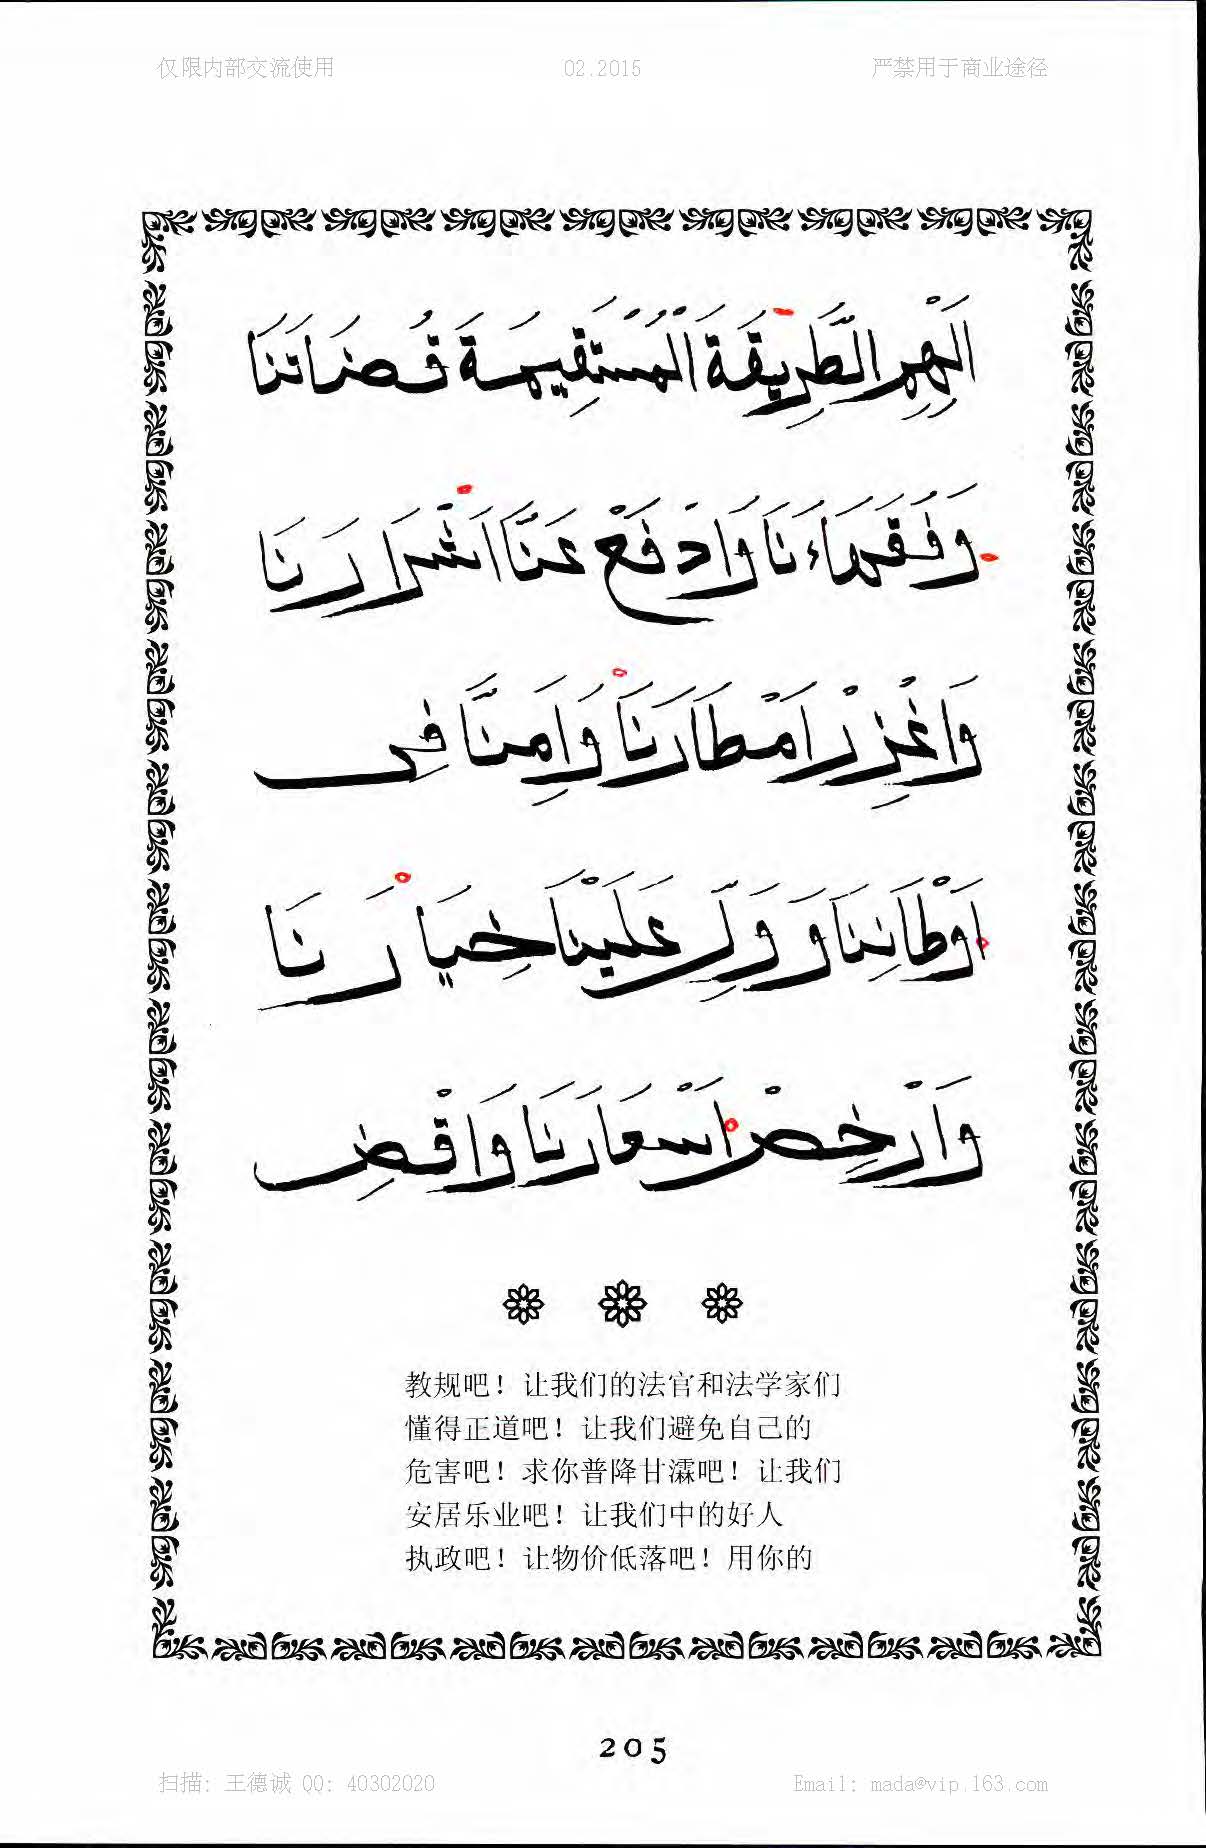 仅限内部交流使用 02.2015 严禁用于商业途径
اَلْهِمِ الطَّرِيقَةَ الْمُسْتَقِيمَةَ قُضَاتَنَا
وَفُقَهَاءَنَا وَادْفَعْ عَنَّا اَشْرَارَنَا
وَاَغْزِرْ اَمْطَارَنَا وَاَمِنَّا فِى
اَوْطَانِنَا وَوَلِّ عَلَيْنَا خِيَارَنَا
وَاَرْخِصْ اَسْعَارَنَا وَاقْضِ
教规吧！让我们的法官和法学家们
懂得正道吧！让我们避免自己的
危害吧！求你普降甘霖吧！让我们
安居乐业吧！让我们中的好人
执政吧！让物价低落吧！用你的
205
扫描: 王德诚 QQ: 40302020 Email: mada@vip.163.com